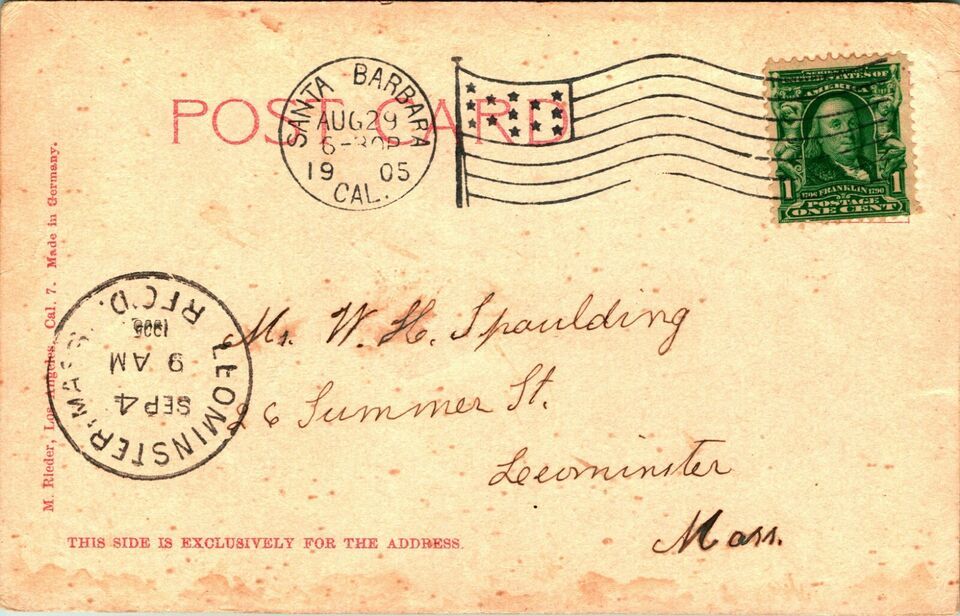 POST CARD
SANTA BARBARA
AUG 29
6-30P
19 05
CAL.
SERIES 1902
UNITED STATES OF
AMERICA
1 1708 FRANKLIN 1790 1
POSTAGE
ONE CENT
M. Rieder, Los Angeles, Cal. 7. Made in Germany.
LEOMINSTER, MASS. REC'D.
SEP 4
9 AM
1905
Mr. W. H. Spaulding
26 Summer St.
Leominster
Mass.
THIS SIDE IS EXCLUSIVELY FOR THE ADDRESS.